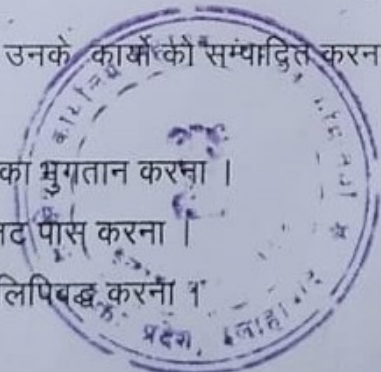 उनके कार्यो को सम्पादित करन
का भुगतान करना ।
नट पास करना ।
लिपिबद्ध करना ।
प्रदेश,